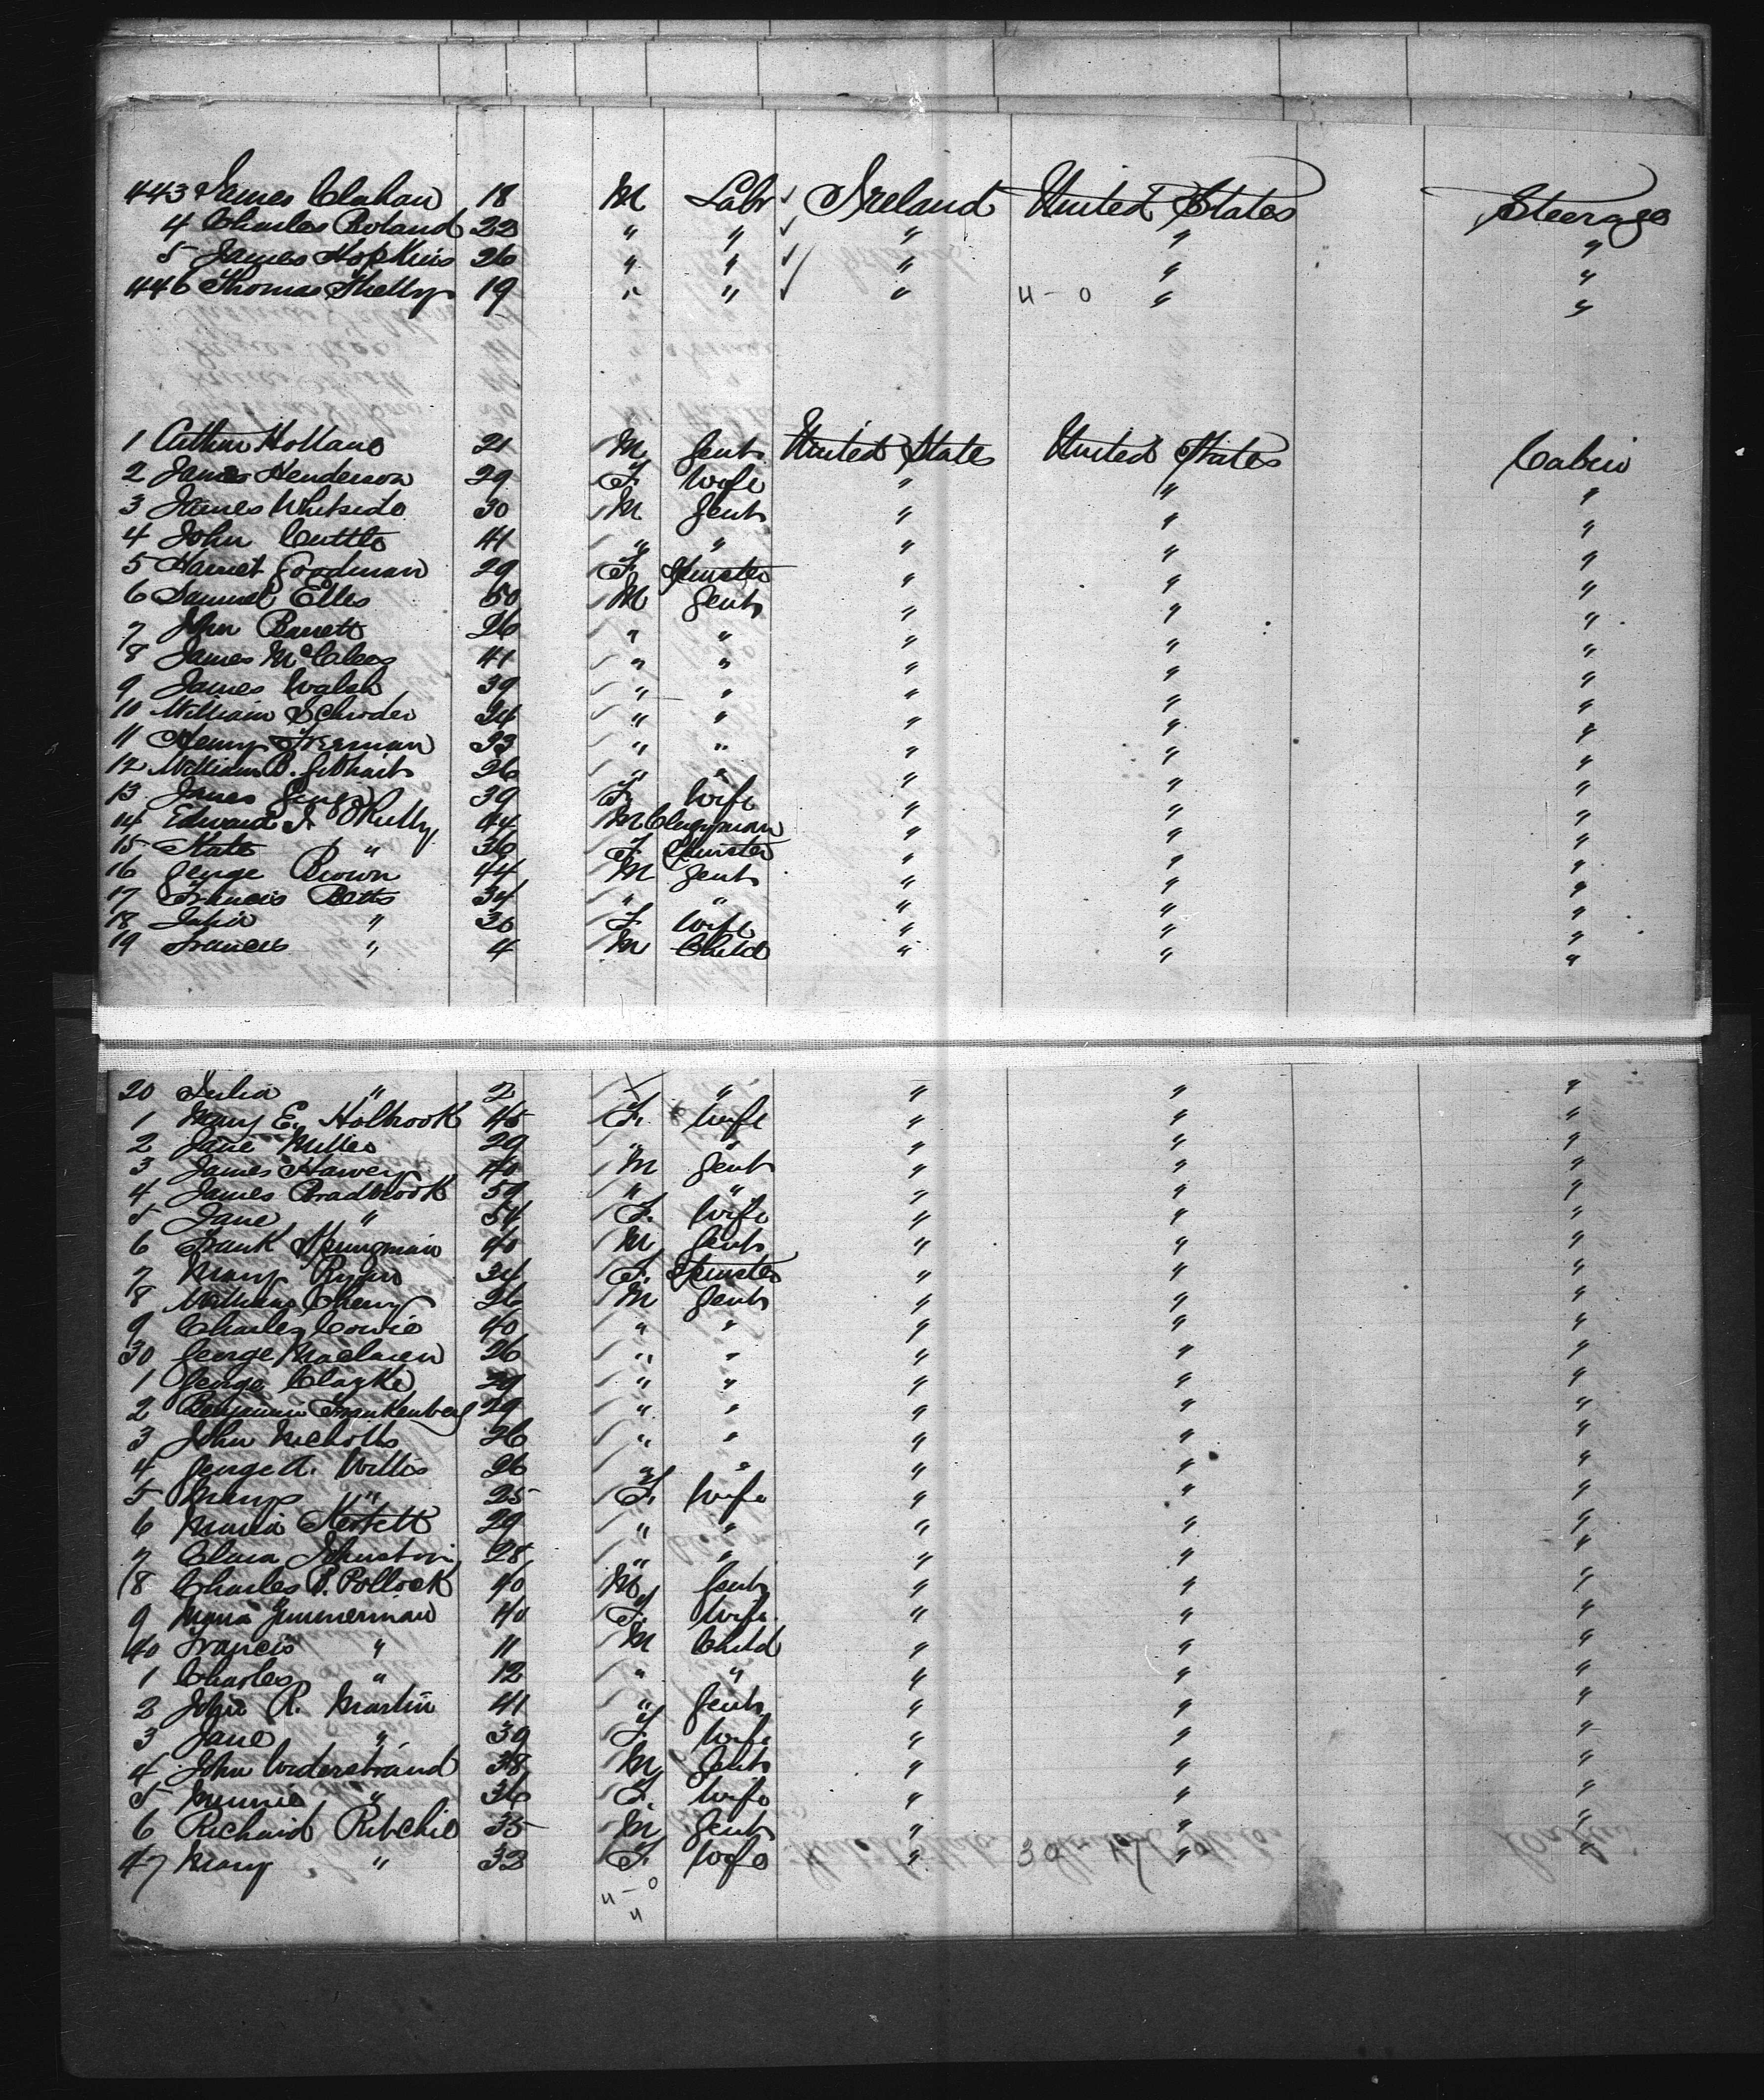 443 James Clahan 18 M Labr ✓ Ireland United States Steerage
4 Charles Boland 22 " " ✓ " " "
5 James Hopkins 26 " " ✓ " " "
446 Thomas Skelly 19 " " ✓ " 4-0 " "
1 Arthur Holland 21 M Gent United State United States Cabin
2 James Henderson 29 F. Wife " " "
3 James Whiteside 30 M Gent " " "
4 John Cuttle 41 " " " " "
5 Harriet Goodman 29 F. Spinster " " "
6 Samuel Elles 50 M Gent " " "
7 John Barrett 26 " " " " "
8 James McClees 41 " " " " "
9 James Walsh 39 " " " " "
10 William Schroder 24 " " " " "
11 Henry Freeman 33 " " " " "
12 William B. Gebhart 26 " " " " "
13 James 39 F. Wife " " "
14 Edward J. O'Reilly 44 M Clergyman " " "
15 Kate " 36 F. Spinster " " "
16 George Brown 44 M Gent " " "
17 Francis Betts 34 " " " " "
18 Julia " 30 F. Wife " " "
19 Francis " 4 M Child " " "
20 Julia " 2 F " " " "
1 Mary E. Holbrook 45 F. Wife " " "
2 Jane Miller 29 " " " " "
3 James Harvey 40 M Gent " " "
4 James Bradbrook 59 " " " " "
5 Jane " 54 F. Wife " " "
6 Frank Springman 40 M Gent " " "
7 Mary Ryan 34 F. Spinster " " "
8 William Cherry 26 M Gent " " "
9 Charles Cowie 40 " " " " "
30 George Maclaren 26 " " " " "
1 George Clarke 29 " " " " "
2 Benjamin Frankenberg 29 " " " " "
3 John Nicholls 26 " " " " "
4 George A. Willis 26 " " " " "
5 Mary " 25 F. Wife " " "
6 Maria 29 " " " " "
7 Clara Johnston 28 " " " " "
8 Charles B. Pollock 40 M Gent " " "
9 Myra Zimmerman 40 F. Wife " " "
40 Francis " 11 M Child " " "
1 Charles " 12 " " " " "
2 John R. Martin 41 " Gent " " "
3 Jane " 39 F. Wife " " "
4 John Widerstrand 38 M Gent " " "
5 Minnie " 36 F. Wife " " "
6 Richard Ritchie 35 M Gent " " "
47 Mary " 32 F. Wife " " "
4-0
4